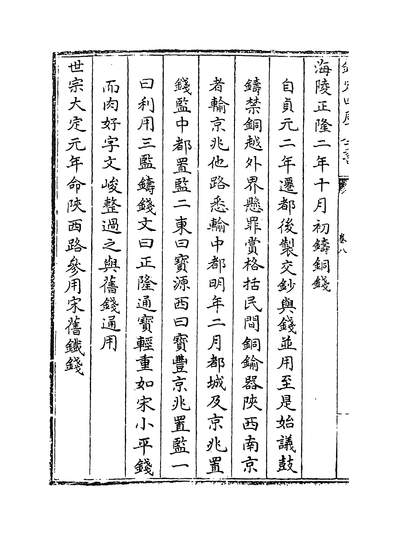 海陵正隆二年十月初鑄銅錢
自貞元二年遷都後製交鈔與錢並用至是始議鼓
鑄禁銅越外界懸罪賞格括民間銅鍮器陜西南京
者輸京兆他路悉輸中都明年二月都城及京兆置
錢監中都置監二東曰寶源西曰寶豐京兆置監一
曰利用三監鑄錢文曰正隆通寶輕重如宋小平錢
而肉好字文峻整過之與舊錢通用
世宗大定元年命陜西路參用宋舊鐵錢
卷八